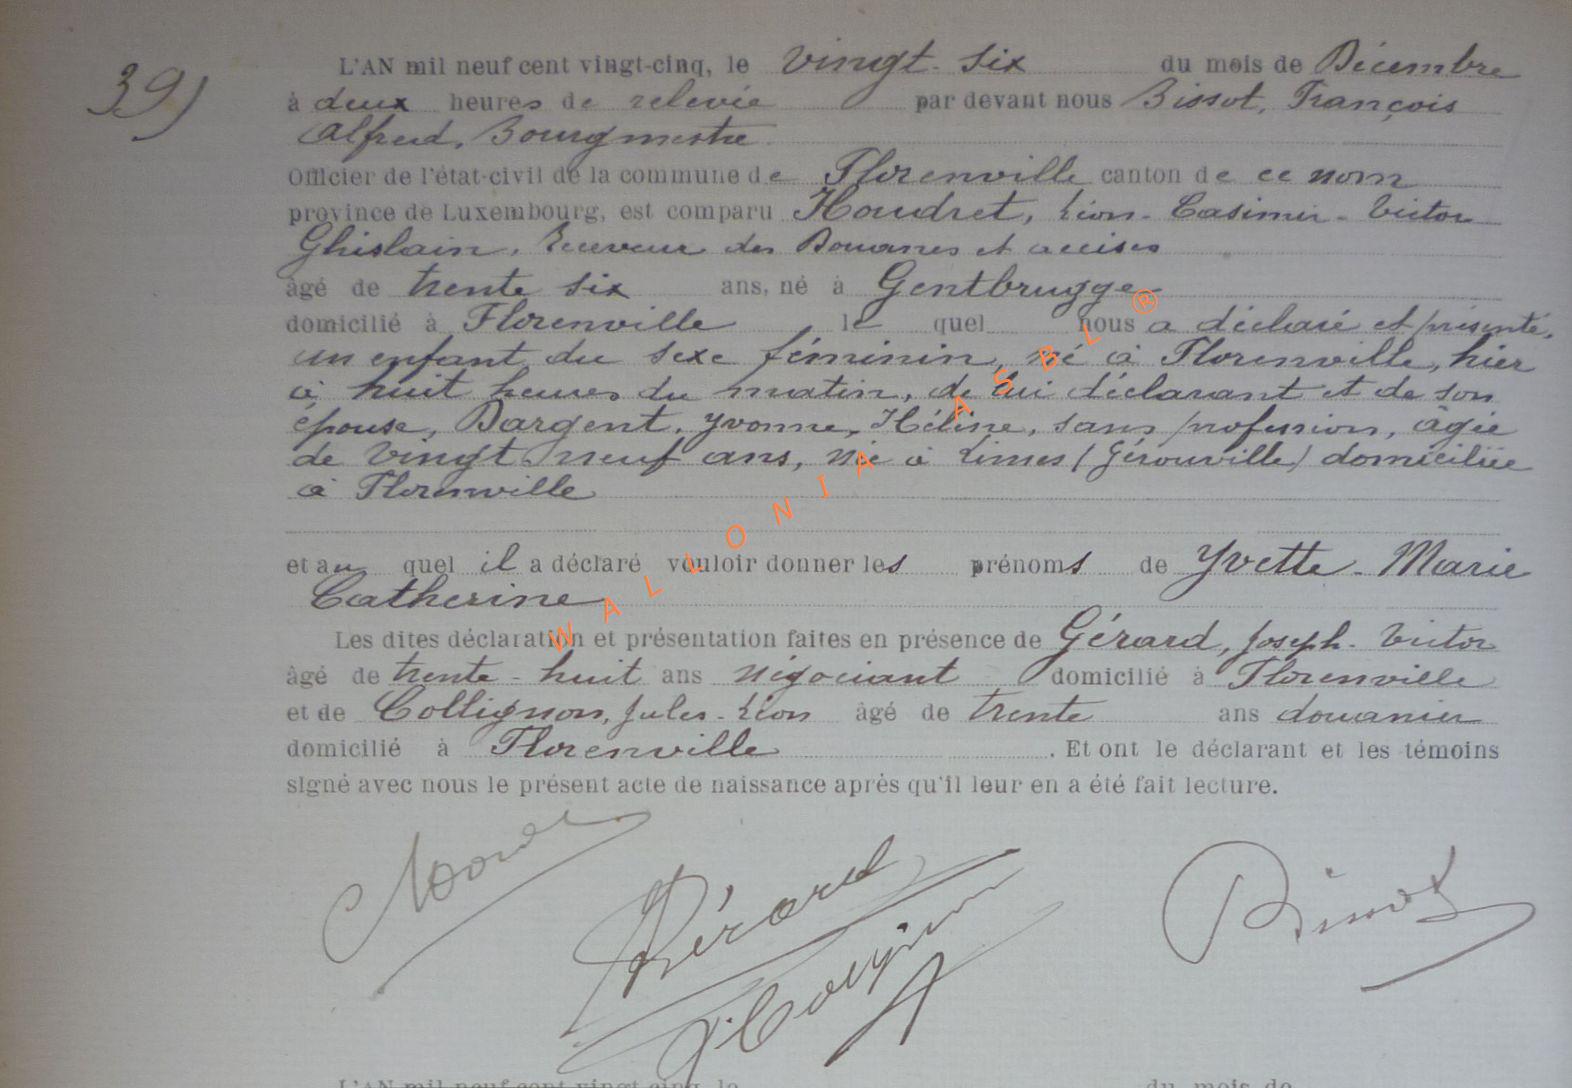 39)
L'AN mil neuf cent vingt-cinq, le vingt-six du mois de Décembre
à deux heures de relevée par devant nous Bissot, François
Alfred, Bourgmestre
Officier de l'état-civil de la commune de Florenville canton de ce nom
province de Luxembourg, est comparu Houdret, Léon-Casimir-Victor
Ghislain, Receveur des Douanes et accises
âgé de trente six ans, né à Gentbrugge
domicilié à Florenville le quel nous a déclaré et présenté,
un enfant du sexe féminin, né à Florenville, hier
à huit heures du matin, de lui déclarant et de son
épouse, Dargent, Yvonne, Hélène, sans profession, âgée
de vingt-neuf ans, née à Limes (Gérouville) domiciliée
à Florenville
et au quel il a déclaré vouloir donner les prénoms de Yvette-Marie
Catherine
Les dites déclaration et présentation faites en présence de Gérard, Joseph-Victor
âgé de trente-huit ans négociant domicilié à Florenville
et de Collignon, Jules-Léon âgé de trente ans douanier
domicilié à Florenville. Et ont le déclarant et les témoins
signé avec nous le présent acte de naissance après qu'il leur en a été fait lecture.
Gérard
Bissot
WALLONIA ASBL®
L'AN mil neuf cent vingt-cinq, le du mois de